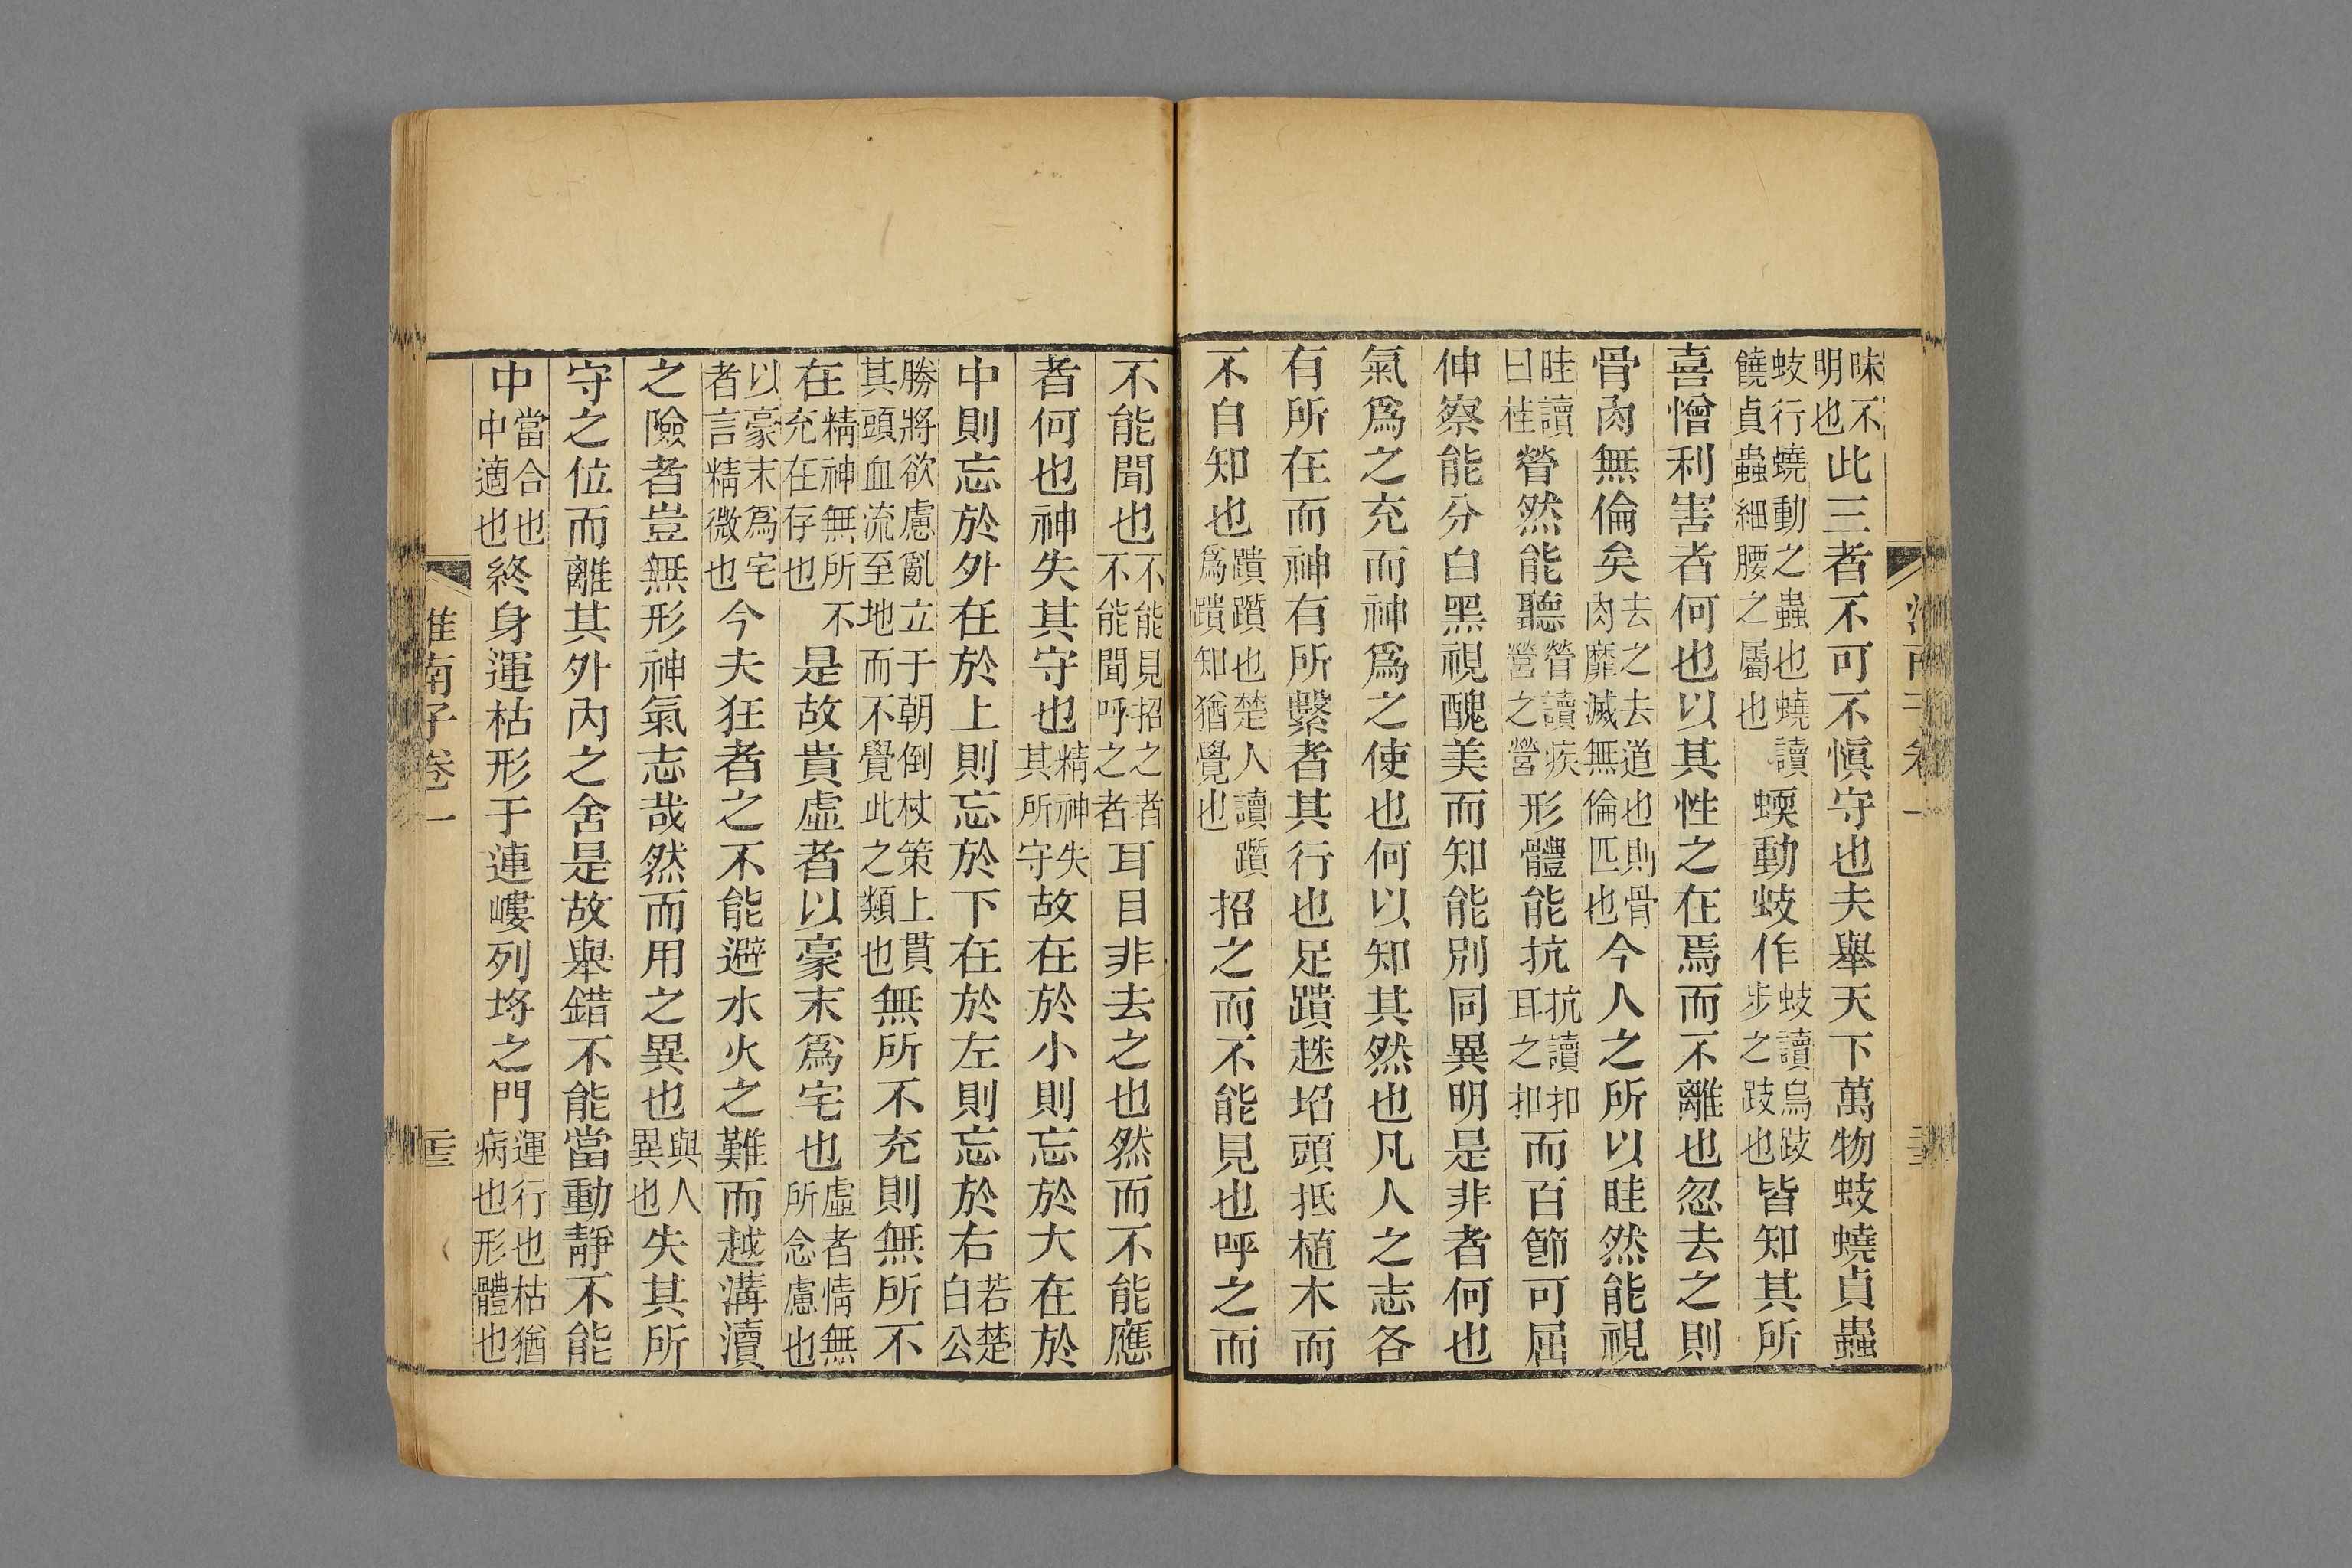 昧不明也此三者不可不慎守也夫舉天下萬物蚑蟯貞蟲
蚑行蟯動之蟲也蟯讀饒貞蟲細腰之屬也蝡動蚑作蚑讀鳥跂步之跂也皆知其所
喜憎利害者何也以其性之在焉而不離也忽去之則
骨肉無倫矣去之去道也則骨肉靡滅無倫匹也今人之所以眭然能視
眭讀曰桂㬐然能聽㬐讀疾營之營形體能抗抗讀扣耳之扣而百節可屈
伸察能分白黑視醜美而知能別同異明是非者何也
氣爲之充而神爲之使也何以知其然也凡人之志各
有所在而神有所繫者其行也足蹪趎埳頭抵植木而
不自知也蹪躓也楚人讀躓爲蹪知猶覺也招之而不能見也呼之而
不能聞也不能見招之者不能聞呼之者耳目非去之也然而不能應
者何也神失其守也精神失其所守故在於小則忘於大在於
中則忘於外在於上則忘於下在於左則忘於右若楚白公
勝將欲慮亂立于朝倒杖策上貫其頭血流至地而不覺此之類也無所不充則無所不
在精神無所不充在存也是故貴虛者以豪末爲宅也虛者情無所念慮也
以豪末爲宅者言精微也今夫狂者之不能避水火之難而越溝瀆
之險者豈無形神氣志哉然而用之異也與人異也失其所
守之位而離其外內之舍是故舉錯不能當動靜不能
中當合也中適也終身運枯形于連嶁列埒之門運行也枯猶病也形體也
淮南子卷一